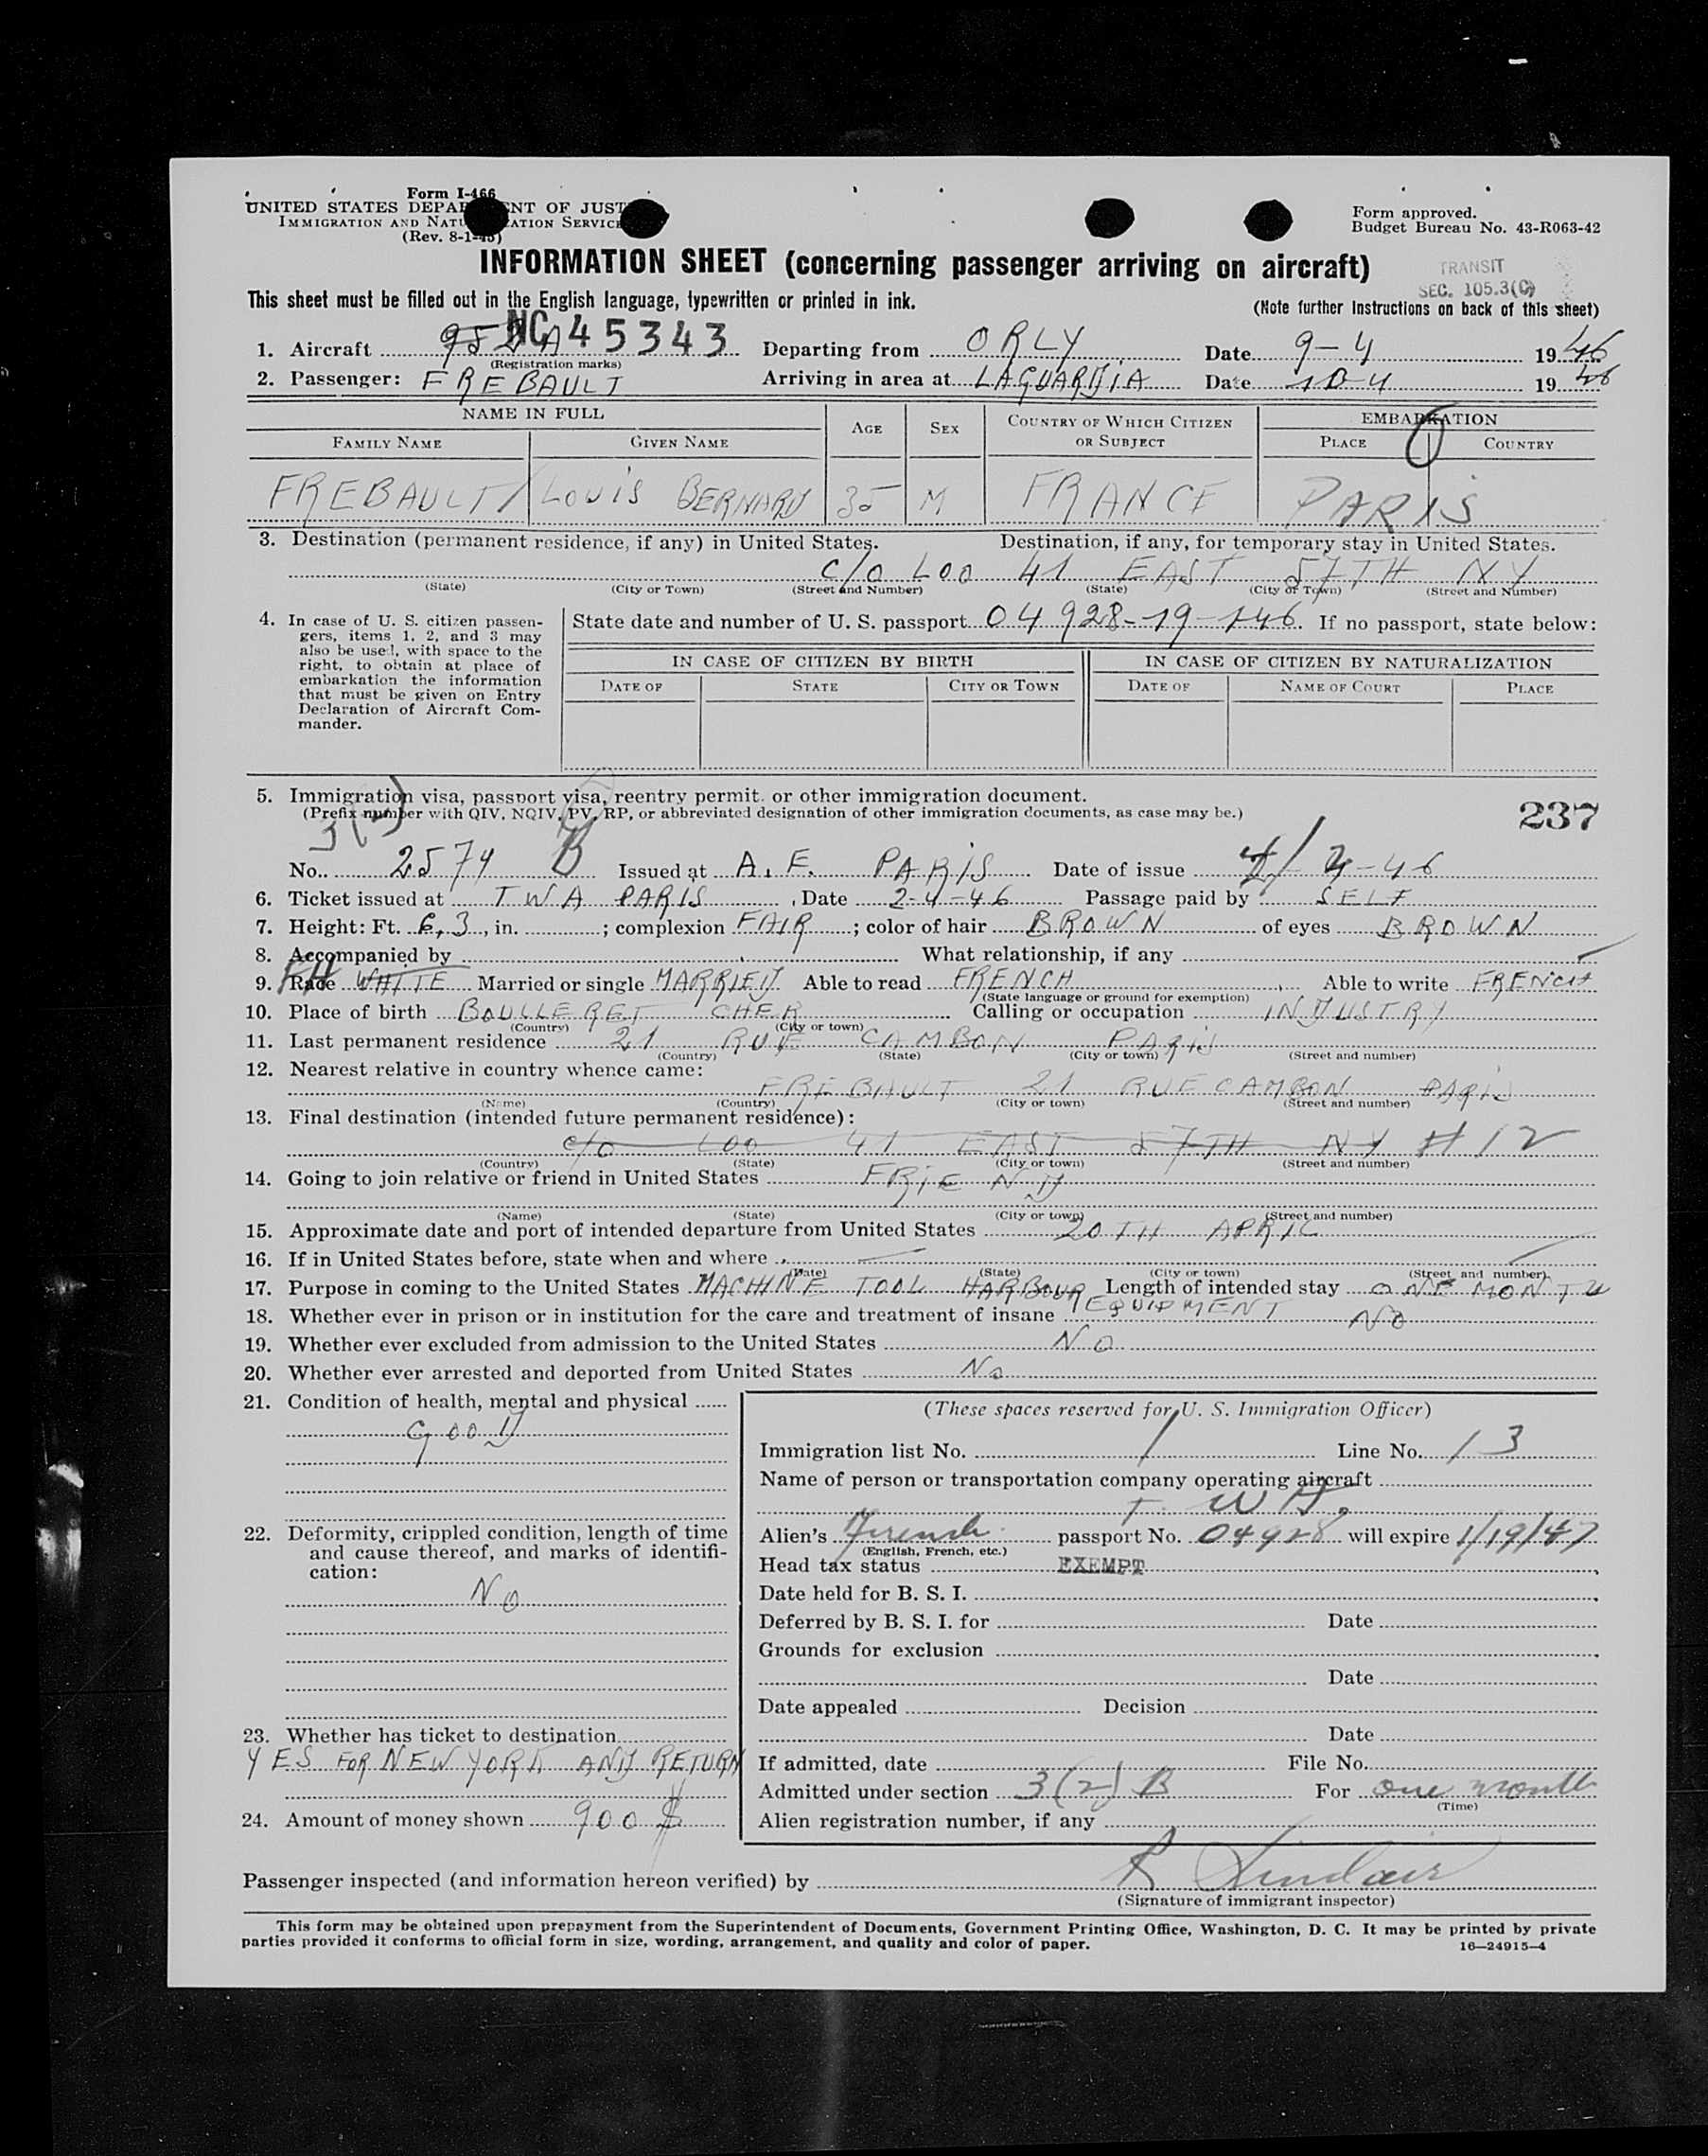 Form I-466
UNITED STATES DEPARTMENT OF JUSTICE
IMMIGRATION AND NATURALIZATION SERVICE
(Rev. 8-1-45)
Form approved.
Budget Bureau No. 43-R063-42
INFORMATION SHEET (concerning passenger arriving on aircraft)
TRANSIT
SEC. 105.3(C)
This sheet must be filled out in the English language, typewritten or printed in ink.
(Note further instructions on back of this sheet)
1. Aircraft NC 45343 Departing from ORLY Date 9-4 1946
(Registration marks)
2. Passenger: FREBAULT Arriving in area at LAGUARDIA Date 10-4 1946
NAME IN FULL AGE SEX COUNTRY OF WHICH CITIZEN OR SUBJECT EMBARKATION
FAMILY NAME GIVEN NAME PLACE COUNTRY
FREBAULT LOUIS BERNARD 35 M FRANCE PARIS
3. Destination (permanent residence, if any) in United States. Destination, if any, for temporary stay in United States.
C/O LOO 41 EAST 57TH NY
(State) (City or Town) (Street and Number) (State) (City or Town) (Street and Number)
4. In case of U. S. citizen passengers, items 1, 2, and 3 may also be used, with space to the right, to obtain at place of embarkation the information that must be given on Entry Declaration of Aircraft Commander.
State date and number of U. S. passport 04928-19-1-46. If no passport, state below:
IN CASE OF CITIZEN BY BIRTH IN CASE OF CITIZEN BY NATURALIZATION
DATE OF STATE CITY OR TOWN DATE OF NAME OF COURT PLACE
5. Immigration visa, passport visa, reentry permit, or other immigration document.
(Prefix number with QIV, NQIV, PV, RP, or abbreviated designation of other immigration documents, as case may be.)
237
3(2) B
No. 2574 Issued at A. E. PARIS Date of issue 4-46
6. Ticket issued at TWA PARIS, Date 2-4-46 Passage paid by SELF
7. Height: Ft. 6,3, in. ; complexion FAIR; color of hair BROWN of eyes BROWN
8. Accompanied by What relationship, if any —
9. Race WHITE FH Married or single MARRIED Able to read FRENCH Able to write FRENCH
(State language or ground for exemption)
10. Place of birth BOULLERET CHER Calling or occupation INDUSTRY
(Country) (City or town)
11. Last permanent residence 21 RUE CAMBON PARIS
(Country) (State) (City or town) (Street and number)
12. Nearest relative in country whence came:
FREBAULT 21 RUE CAMBON PARIS
(Name) (Country) (City or town) (Street and number)
13. Final destination (intended future permanent residence):
c/o LOO 41 EAST 57TH NY # 12
(Country) (State) (City or town) (Street and number)
14. Going to join relative or friend in United States FRIEND
(Name) (State) (City or town) (Street and number)
15. Approximate date and port of intended departure from United States 20TH APRIL
16. If in United States before, state when and where —
(Date) (State) (City or town) (Street and number)
17. Purpose in coming to the United States MACHINE TOOL HARBOUR Length of intended stay ONE MONTH
EQUIPMENT
18. Whether ever in prison or in institution for the care and treatment of insane NO
19. Whether ever excluded from admission to the United States NO
20. Whether ever arrested and deported from United States No
21. Condition of health, mental and physical
GOOD
22. Deformity, crippled condition, length of time and cause thereof, and marks of identification:
NO
23. Whether has ticket to destination
YES FOR NEW YORK AND RETURN
24. Amount of money shown 900 $
(These spaces reserved for U. S. Immigration Officer)
Immigration list No. 1 Line No. 13
Name of person or transportation company operating aircraft
T. W A.
Alien's French passport No. 04928 will expire 1/19/47
(English, French, etc.)
Head tax status EXEMPT
Date held for B. S. I.
Deferred by B. S. I. for Date
Grounds for exclusion
Date
Date appealed Decision
Date
If admitted, date File No.
Admitted under section 3(2) B For one month
(Time)
Alien registration number, if any
Passenger inspected (and information hereon verified) by R Sinclair
(Signature of immigrant inspector)
This form may be obtained upon prepayment from the Superintendent of Documents, Government Printing Office, Washington, D. C. It may be printed by private
parties provided it conforms to official form in size, wording, arrangement, and quality and color of paper.
16—24915-4